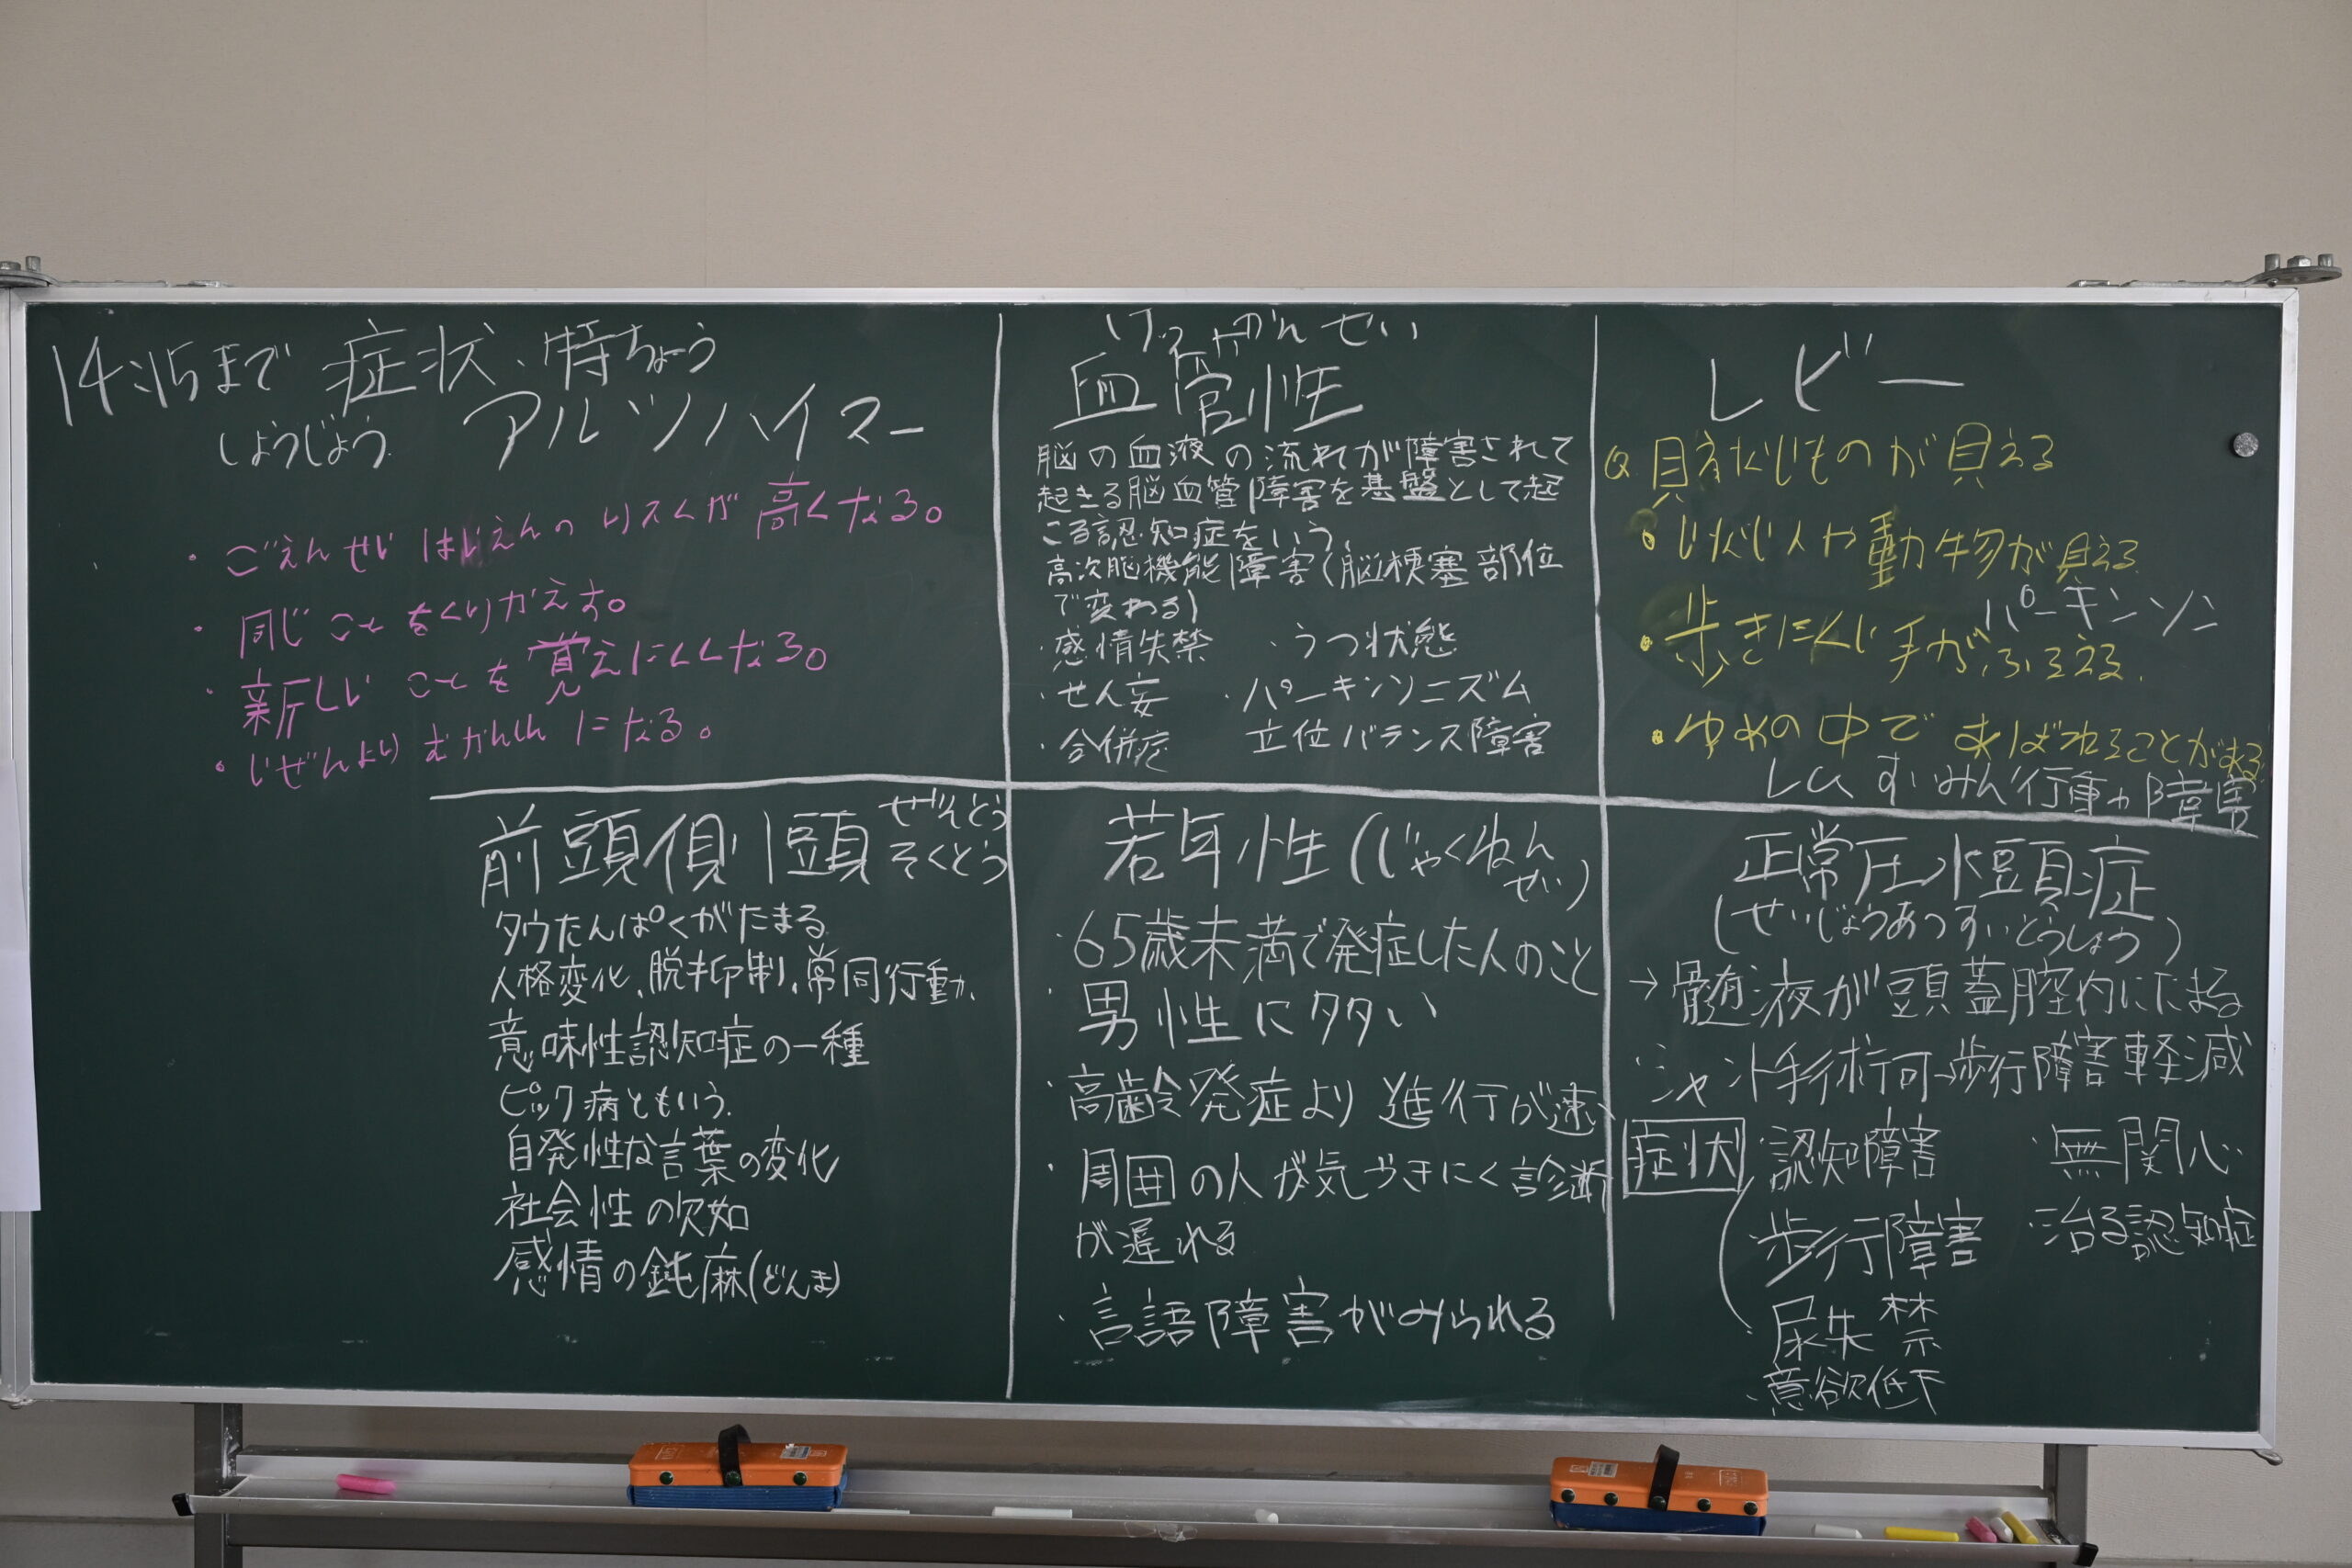 14:15まで 症状、特ちょう
しょうじょう
アルツハイマー
・ごえんせい はいえんの リスクが 高くなる。
・同じ ことをくりかえす。
・新しい ことを 覚えにくくなる。
・いぜんより むかんしん になる。
けっかんせい
血管性
脳の血液の流れが障害されて
起きる脳血管障害を基盤として起
こる認知症をいう。
高次脳機能障害(脳梗塞部位
で変わる)
・感情失禁 ・うつ状態
・せん妄 ・パーキンソニズム
・合併症 立位バランス障害
レビー
ものが見える
人や動物が見える
パーキンソン
・歩きにくい 手がふるえる.
・ゆめの中で あばれることがある
レム すいみん行動障害
前頭側頭 ぜんとう
そくとう
タウたんぱくがたまる
人格変化、脱抑制、常同行動、
意味性認知症の一種
ピック病ともいう.
自発性な言葉の変化
社会性の欠如
感情の鈍麻(どんま)
若年性(じゃくねん
せい)
・65歳未満で発症した人のこと
・男性に多い
・高齢発症より 進行が速い
・周囲の人が気づきにく診断
が遅れる
・言語障害がみられる
正常圧水頭症
(せいじょうあつすいとうしょう)
→髄液が頭蓋腔内にたまる
・シャント手術可→歩行障害軽減
症状 ・認知障害 ・無関心
・歩行障害 ・治る認知症
・尿失禁
・意欲低下